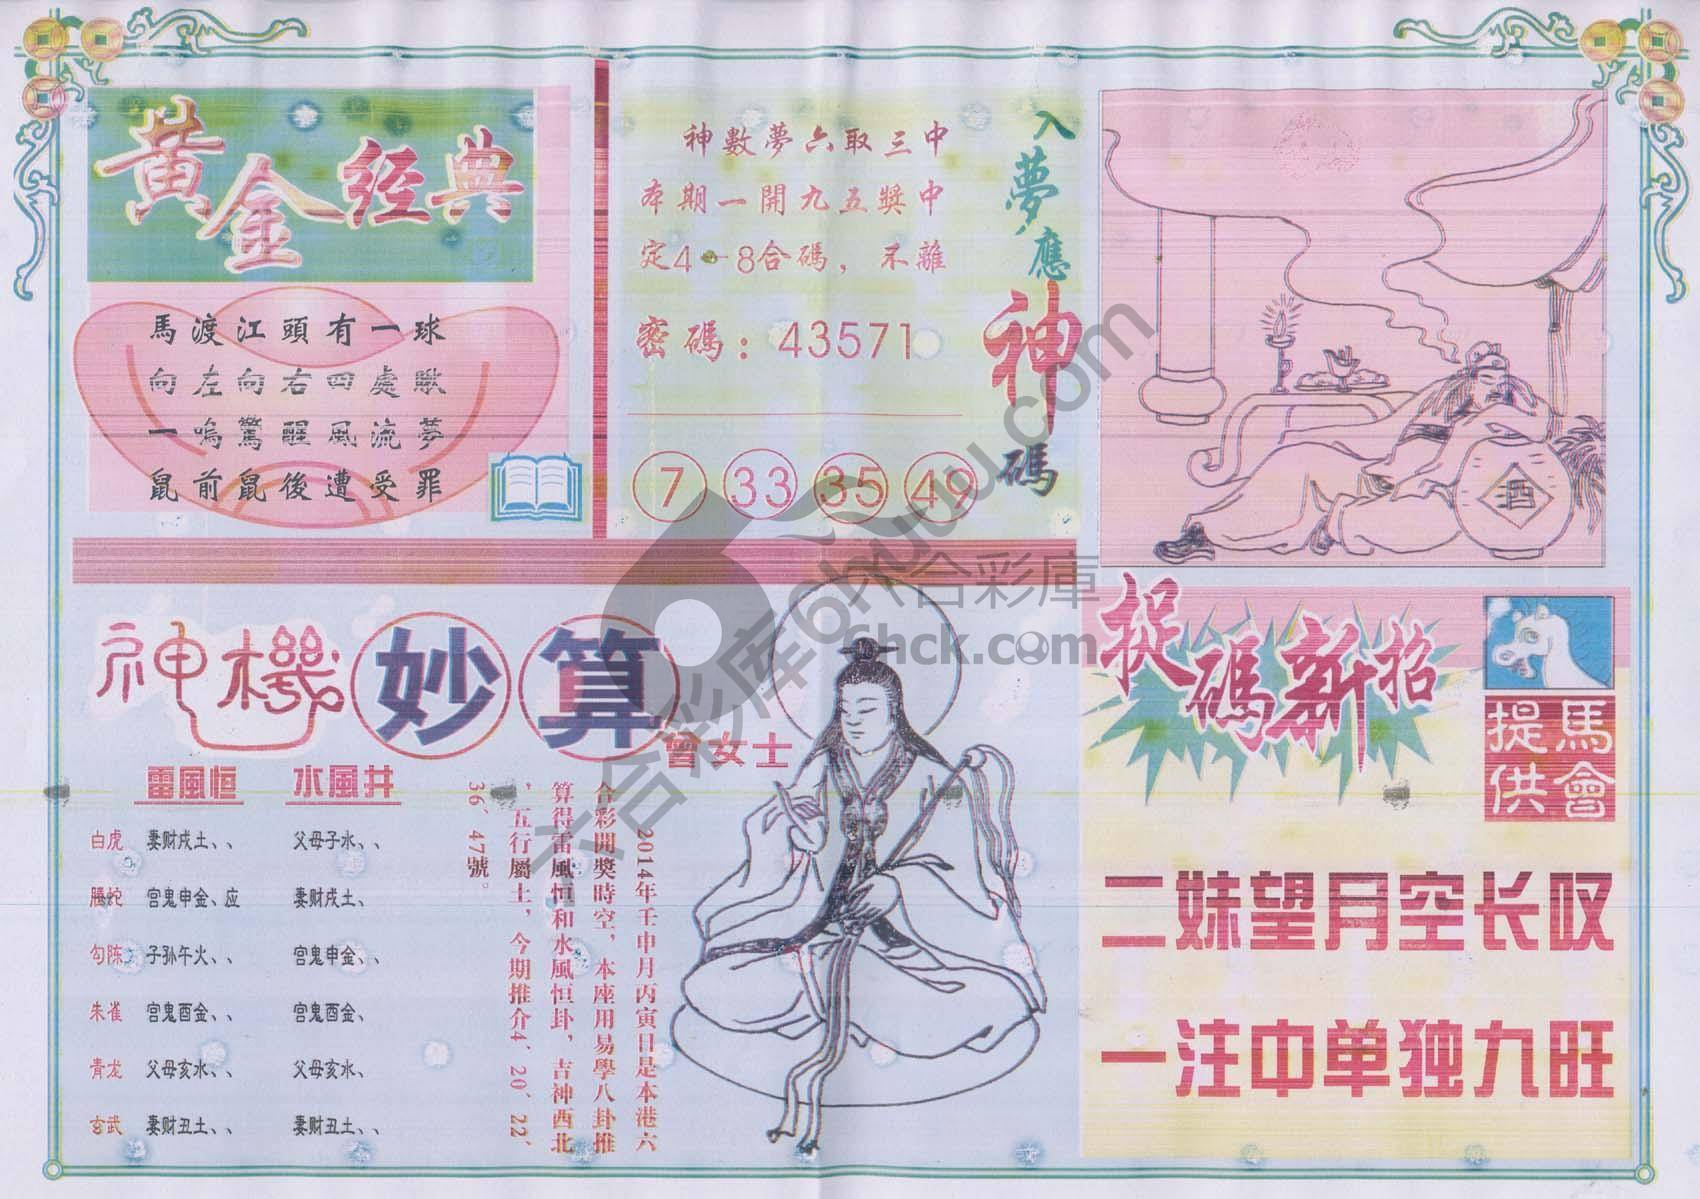 黄金经典
馬渡江頭有一球
向左向右四處瞅
一鳴驚醒風流夢
鼠前鼠後遭受罪
入夢應神碼
神數夢六取三中
本期一開九五獎中
定4－8合碼，不離
密碼：43571
7 33 35 49
酒
神機妙算
曾女士
雷風恒 水風井
白虎 妻财戌土、、 父母子水、、
螣蛇 官鬼申金、应 妻财戌土、
勾陈 子孙午火、、 官鬼申金、、
朱雀 官鬼酉金、、 官鬼酉金、
青龙 父母亥水、、 父母亥水、
玄武 妻财丑土、、 妻财丑土、、
2014年壬申月丙寅日是本港六
合彩開獎時空，本座用易學八卦推
算得雷風恒和水風恒卦，吉神西北
，五行屬土，今期推介4、20、22、
36、47號。
捉碼新招
馬會
提供
二妹望月空长叹
一注中单独九旺
六合彩库ohuuu.com
六合彩庫
6hck.com